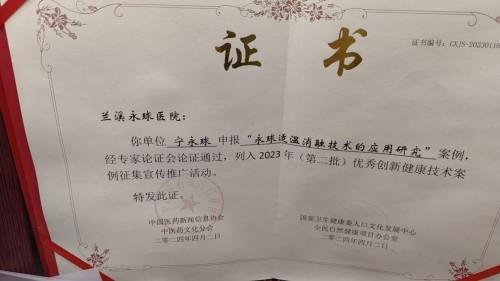 证书编号：CXJS-202301
证书
兰溪永球医院：
你单位 宁永球 申报“永球适温消融技术的应用研究”案例，
经专家论证会论证通过，列入2023年（第二批）优秀创新健康技术案
例征集宣传推广活动。
特发此证。
中国医药新闻信息协会
中医药文化分会
二〇二四年四月二日
国家卫生健康委人口文化发展中心
全民自然健康项目办公室
二〇二四年四月二日